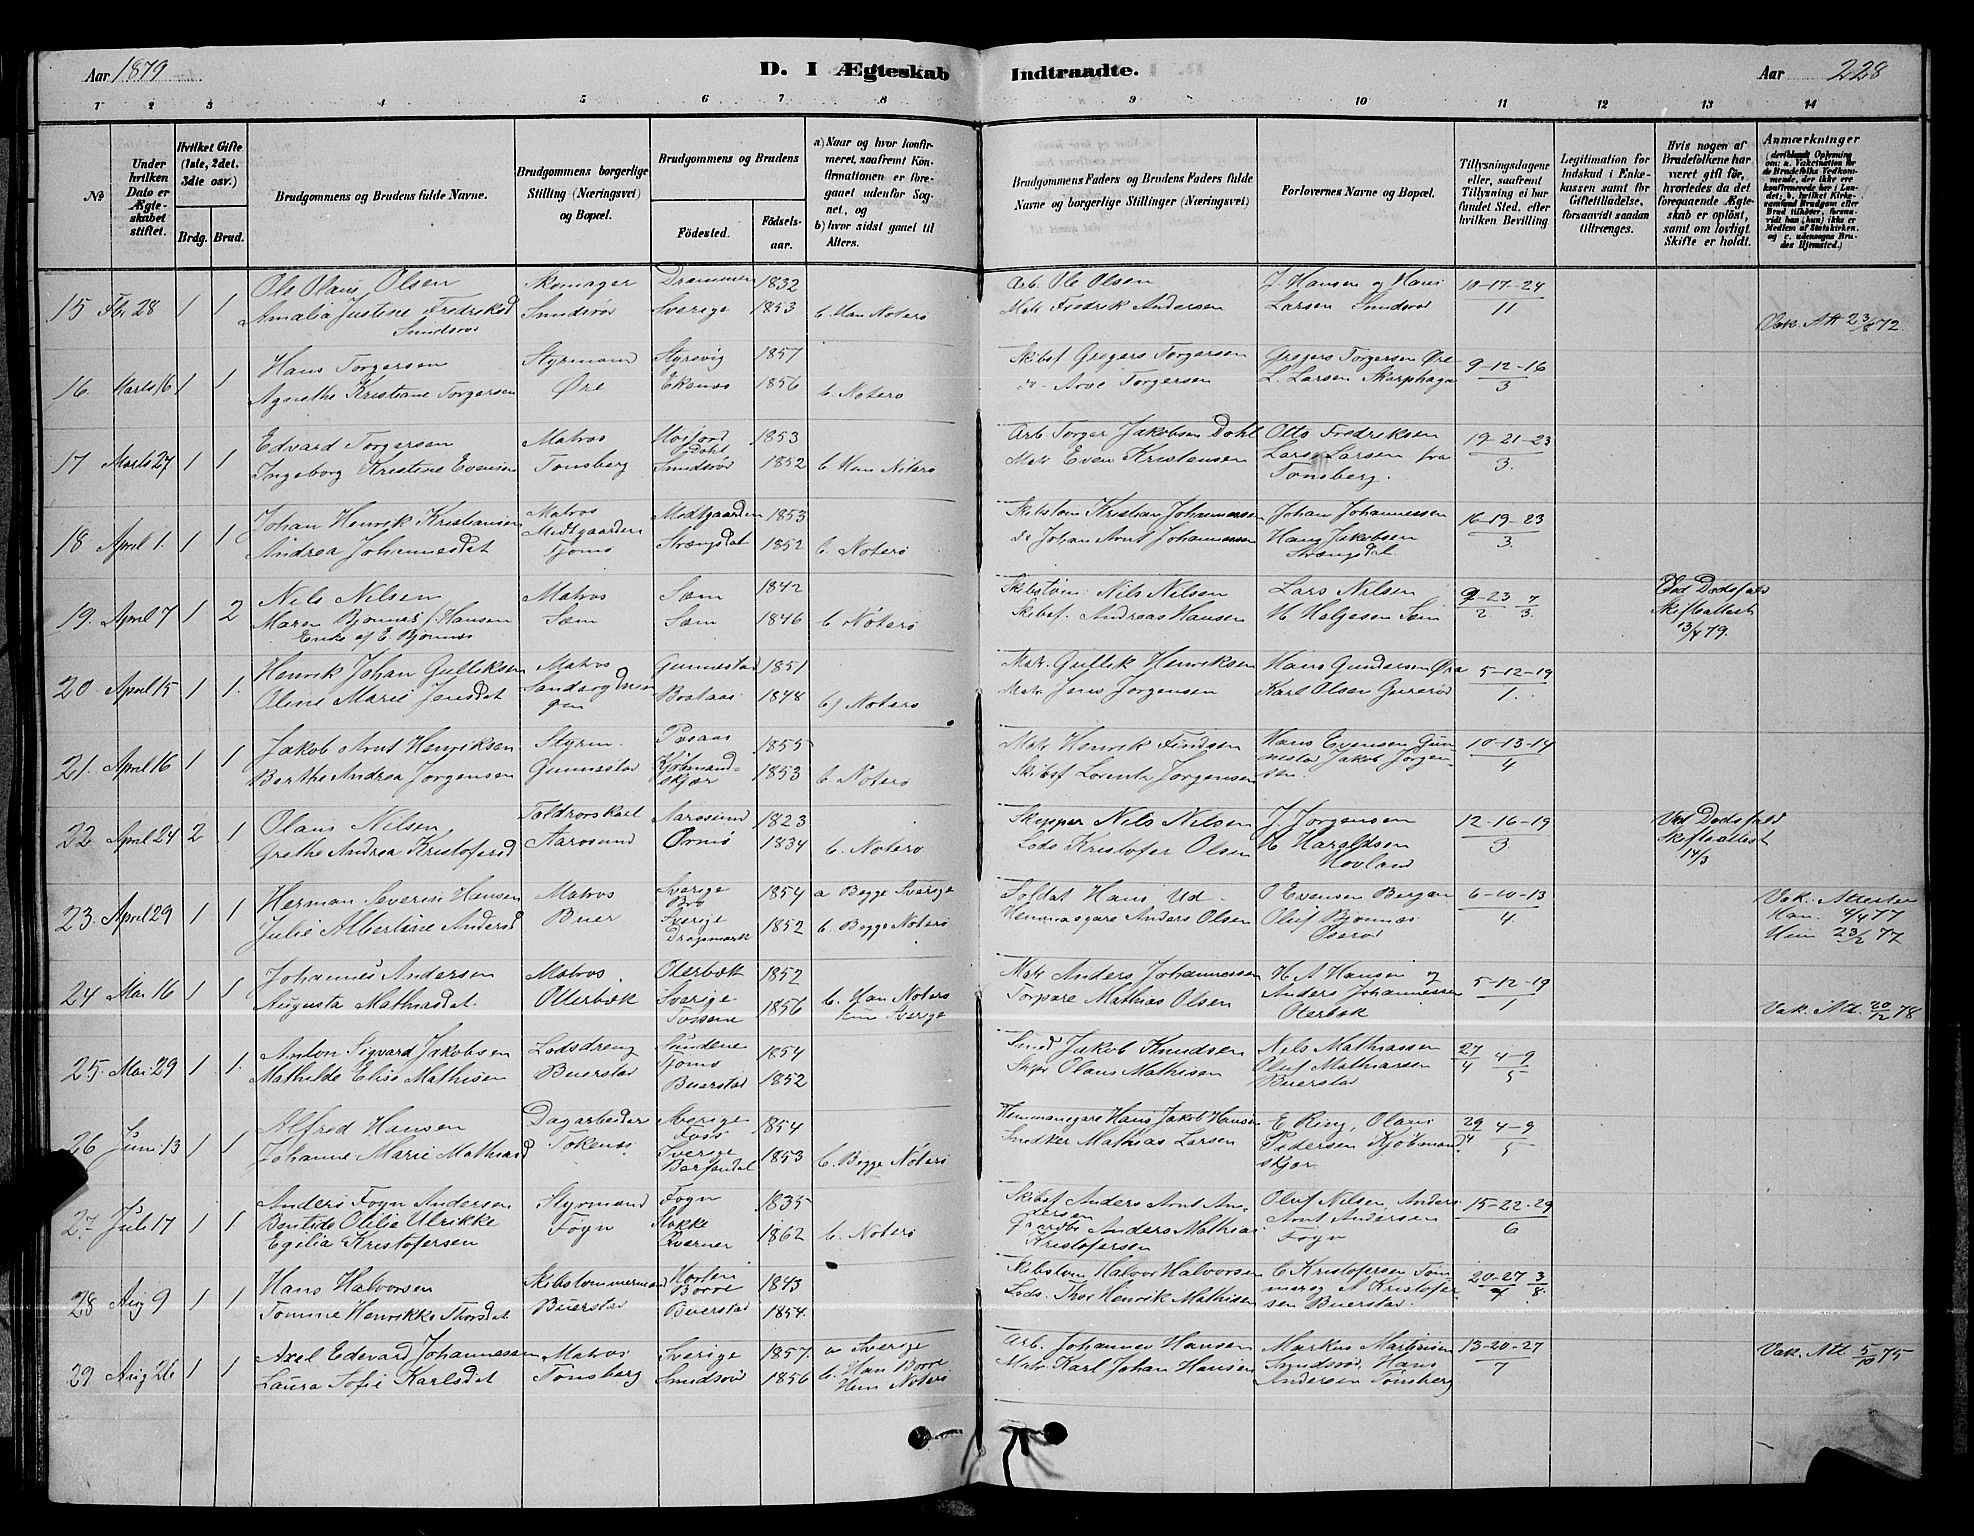 Aar 1879
D. I Ægteskab Indtraadte.
Aar 228
1 2 3 4 5 6 7 8 9 10 11 12 13 14
№
Under hvilken Dato er Ægteskabet stiftet.
Hvilket Gifte (1ste, 2det, 3die osv.)
Brdg. Brud.
Brudgommens og Brudens fulde Navne.
Brudgommens borgerlige Stilling (Næringsvei) og Bopæl.
Brudgommens og Brudens
Fødested. Fødselsaar.
a) Naar og hvor konfirmeret, saafremt Konfirmationen er foregaaet udenfor Sognet, og
b) hvor sidst gaaet til Alters.
Brudgommens Faders og Brudens Faders fulde Navne og borgerlige Stillinger (Næringsvei)
Forlovernes Navne og Bopæl.
Tillysningsdagene eller, saafremt Tillysning ei har fundet Sted, efter hvilken Bevilling
Legitimation for Indskud i Enkekassen samt for Giftetilladelse, forsaavidt saadan tiltrænges.
Hvis nogen af Brudefolkene har været gift før, hvorledes da det foregaaende Ægteskab er opløst, samt om lovligt Skifte er holdt.
Anmærkninger
15 Fbr 28 1 1 Ole Olaus Olsen Skomager Drammen 1832 Arb. Ole Olsen J Hansen og Hans 10-17-24
Amalia Justine Fredriksd Smidsrød Sverige 1853 b. Han Noterø Matr Fredrik Andersen Larsen Smidsrød 11 Vak. Att 23/8 72.
Smidsrød
16. Marts 16 1 1 Hans Torgersen Styrmand Styrsvig 1857 Skibsf Gregers Torgersen Gregers Torgersen Øre 9-12-16
Agnethe Kristiane Torgersen Øre Ekenæs 1856 b. Noterø Do Arve Torgersen L. Larsen Skarphagn 3
17 Marts 27 1 1 Edvard Torgersen Matros Hosfjord Dahl 1853 Arb Torger Jakobsen Dahl Otto Fredriksen 19-21-23
Ingeborg Kristine Evensen Tønsberg Smidsrød 1852 b. Hun Nøterø Matr Even Kristensen Lars Larsen fra 3.
Tønsberg.
18 April 1. 1 1 Johan Henrik Kristiansen Matros Midtgaarden 1853 Skibstøm Kristian Johannessen Johan Johannessen 16-19-23
Andrea Johannesdat Midtgaarden Tjømø Strængsdal 1852 b. Noterø Do Johan Arnt Johannessen Hans Jakobsen 3.
Strængsdal.
19. April 7 1 2 Nils Nilsen Matros Sæm 1842 Skibstøm Nils Nilsen Lars Nilsen 9-23 7 Ved Dødsfald
Maren Bjønnæs f. Hansen Sæm Sæm 1846 b Nøterø Skibsf. Andreas Hansen H Helgesen Sæm 2 3. Skifteattest
Enke ef E. Bjønnæs 13/4 79.
20 April 15 1 1. Henrik Johan Gulliksen Matros Gunnestad 1851 Matr. Gullik Henriksen Hans Gundersen Øra 5-12-19
Oline Marie Jensdat 1848 b) Noterø Matr Jens Jørgensen Karl Olsen 1.
21. April 16 1 1 Jakob Arnt Henriksen Styrm. 1855 Matr Henrik Findsen Hans Evensen Gun 10-13-14
Berthe Andrea Jørgensen Gunnestad Kjøbmandskjær 1853 b Nøterø Skibsf Lorents Jørgensen nestad Jakob Jørgensen. 4
22 April 24 2 1 Olaus Nilsen Toldroskarl Aarøsund 1823 Skipper Nils Nilsen J Jørgensen 12-16-19 Ved Dødsfald
Grethe Andrea Kristofersd Aarøsund Ormø 1834 b. Noterø Lods Kristofer Olsen H Haraldsen 3 Skifteattest
Hovland 14/3
23. April 29 1 1 Herman Severin Hansen Matros Sverige Bro 1854 a Begge Sverige Soldat Hans Ud O Evensen Bergan 6-10-13 Vak. Attester
Julie Albertine Andersd Buer Sverige Dragsmark 1852 b. Begge Noterø Hemmaegare Anders Olsen Oluf Bjønnæs 4 Han. 4/4 77
Oserød Hun 23/2 77
24 Mai 16 1 1 Johannes Andersen Matros. Oterbæk 1852 Matr Anders Johannessen H A Hansen og 5-12-19
Augusta Mathiasdat. Otterbæk Sverige Tossene 1856 b. Han Noterø hun Sverige Torpare Mathias Olsen Anders Johannessen 1 Vak. Att. 20/12 78
Oterbæk
25. Mai 29 1 1. Anton Sigvard Jakobsen Lodsdreng Sundene Tjømø 1854 Smed Jakob Knudsen Nils Mathiassen 27 4-9
Mathilde Elise Mathisen Buerstad Buerstad 1852 Skpr Olaus Mathisen Oluf Mathiassen 4 5
Buerstad
26 Juni 13 1 1 Alfred Hansen Dagarbeider Sverige Foss 1854 Hemmanegare Hans Jakob Hansen E Ring, Olaus 29 4-9
Johanne Marie Mathiasd Tokenæs Sverige Barfendal 1853 b. Begge Nøterø Snedker Mathias Larsen Pedersen Kjøbmand 4 5
skjær
27 Juli 17 1 1 Anders Fogn Andersen Styrmand Fogn 1835 Skibsf Anders Arnt An- Oluf Nilsen, Anders 15-22-29
Bentide Otilie Ulrikke Fogn Stokke 1862 b. Noterø dersen Arnt Andersen 6
Egilia Kristofersen Gaardbr Anders Mathias Fogn
Kristofersen
28 Aug 9 1 1 Hans Halvorsen Skibstømmermand Horten Borre 1843 Skibstøm Halvor Halvorsen E Kristofersen Tøm 20-27 3
Tomine Henrikke Thorsdat Buerstad Buerstad 1854. Lods. Thor Henrik Mathisen mer og A Kristofer 7 8
sen Buerstad.
29 Aug 26 1 1 Axel Edevard Johannessen Matros Sverige 1857. a Sverige Arb. Johannes Hansen Markus Martinsen 13-20-27 Vak. Att. 5/10 75
Laura Sofie Karlsdat Tønsberg Smidsrød 1856 b. Han Borre Hun Nøterø Matr Karl Johan Hansen Smidsrød, Hans 7
Andersen Tønsberg